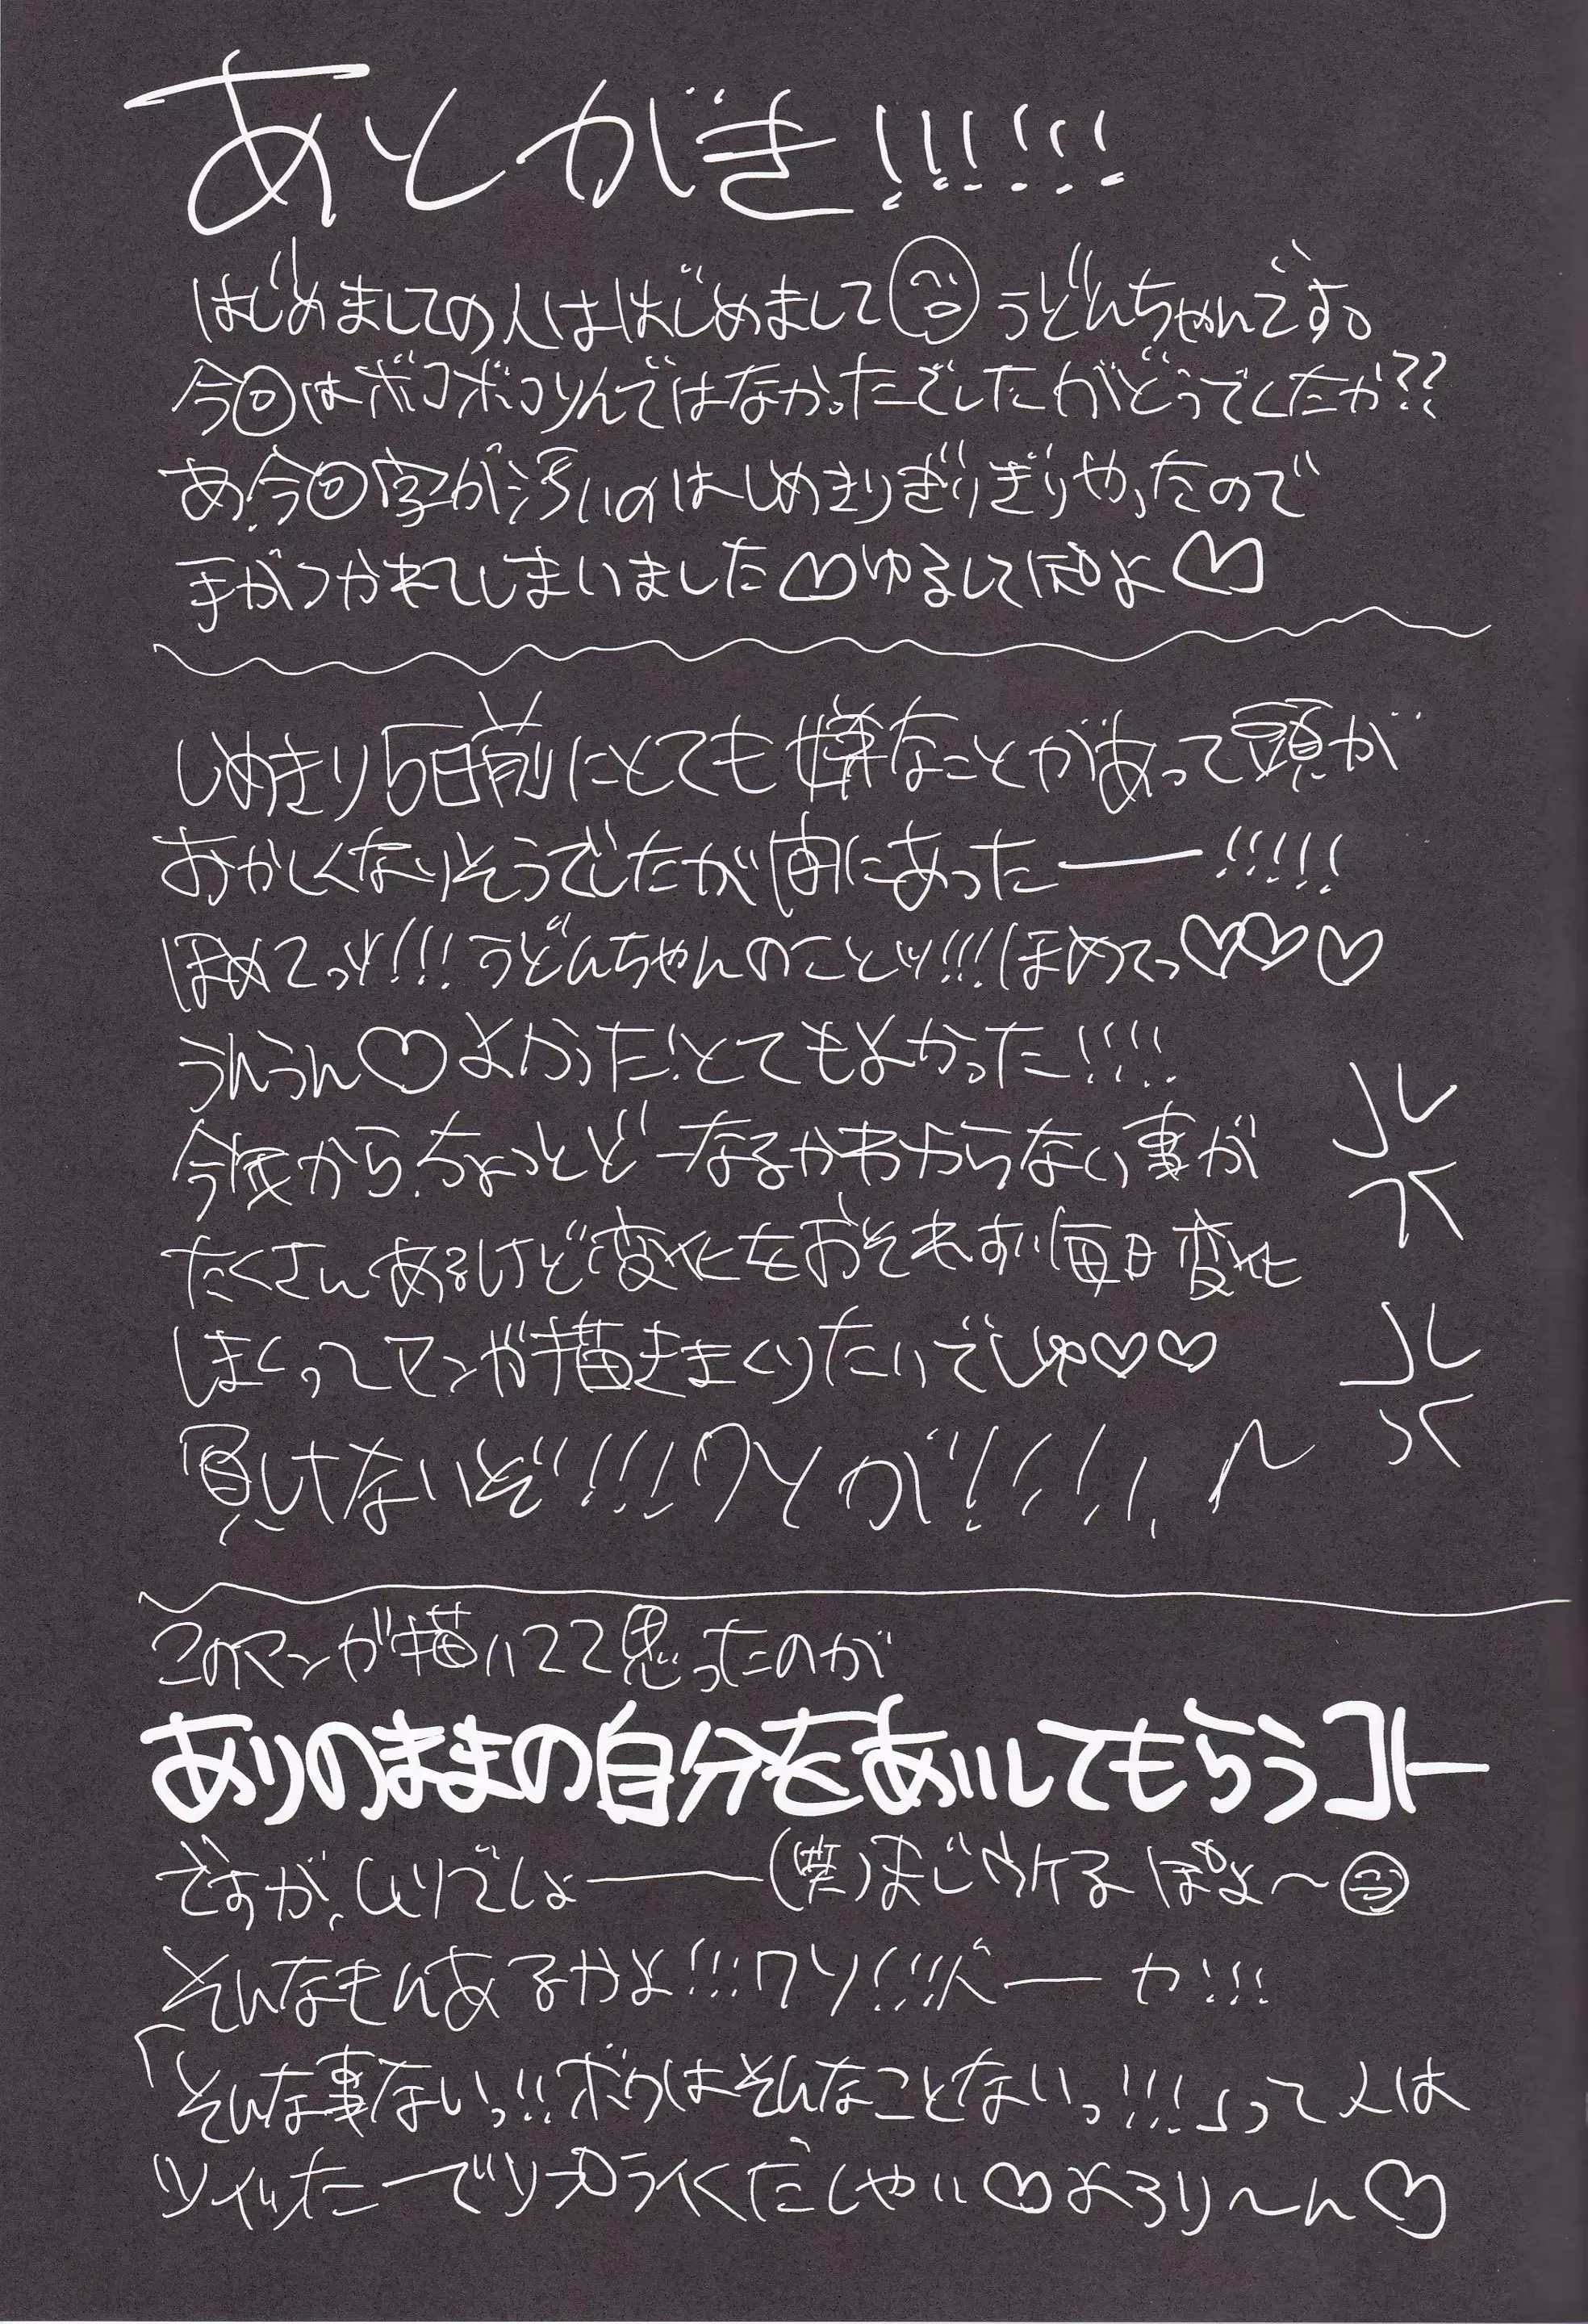 あとがき!!!!!!
はじめましての人ははじめまして うどんちゃんです。
今回はボコボコりんではなかったでしたがどうでしたか??
あ、今回字が汚いのはしめきりぎりぎりやったので
手がつかれてしまいました♡ゆるしてぽよ♡
しめきり5日前にとても嫌なことがあって頭が
おかしくなりそうでしたが間にあったー!!!!!
ほめてっツ!!!うどんちゃんのことツ!!!ほめてっ♡♡♡
うんうん♡よかった!とてもよかった!!!!
今後から、ちょっとどーなるかわからない事が
たくさんあるけど変化をおそれず毎日変化
しまくってマンガ描きまくりたいでしゅ♡♡
負けないぞ!!!!クソが!!!!!
このマンガ描いてて思ったのが
ありのままの自分をあいしてもらうコト
ですが、ムリでしょーー(笑)まじウケるぽよ〜
そんなもんあるかよ!!!クソ!!!!バーカ!!!
「そんな事ないっ!!ボクはそんなことないっ!!!」って人は
ツイッたーでリプライくだしゃい♡よろりーん♡